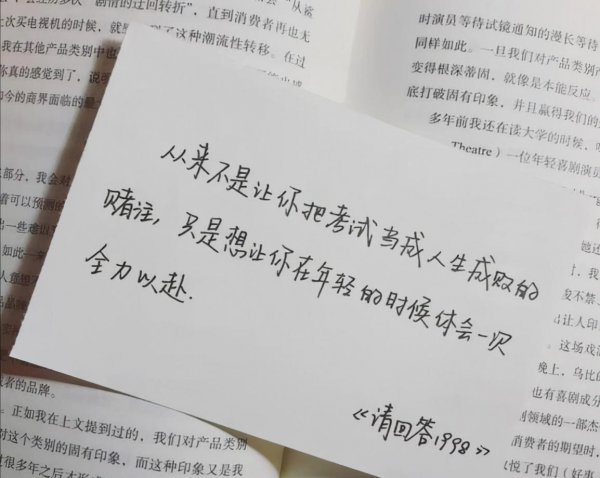 直到消费者再也无
这种潮流性转移。在过
我在其他产品类别中也
你真的感觉到了，说明
如今的商界面临的最
部分，我会对
着可以预测的
时演员等待试镜通知的漫长等待
同样如此。一旦我们对产品类别
变得根深蒂固，就像是本能反应。
底打破固有印象，并且赢得我们的
多年前我还在读大学的时候，
Theatre）一位年轻喜剧演员
从来不是让你把考试当成人生成败的
赌注，只是想让你在年轻的时候体会一次
全力以赴.
《请回答1998》
出让人印
。这场戏
晚上，乌比的
也有喜剧成分
别领域的一部杰
消费者的期望时，
悦了我们（好事
或者的品牌。
。正如我在上文提到过的，我们对产品类别
对这个类别的固有印象，而这种印象又是我